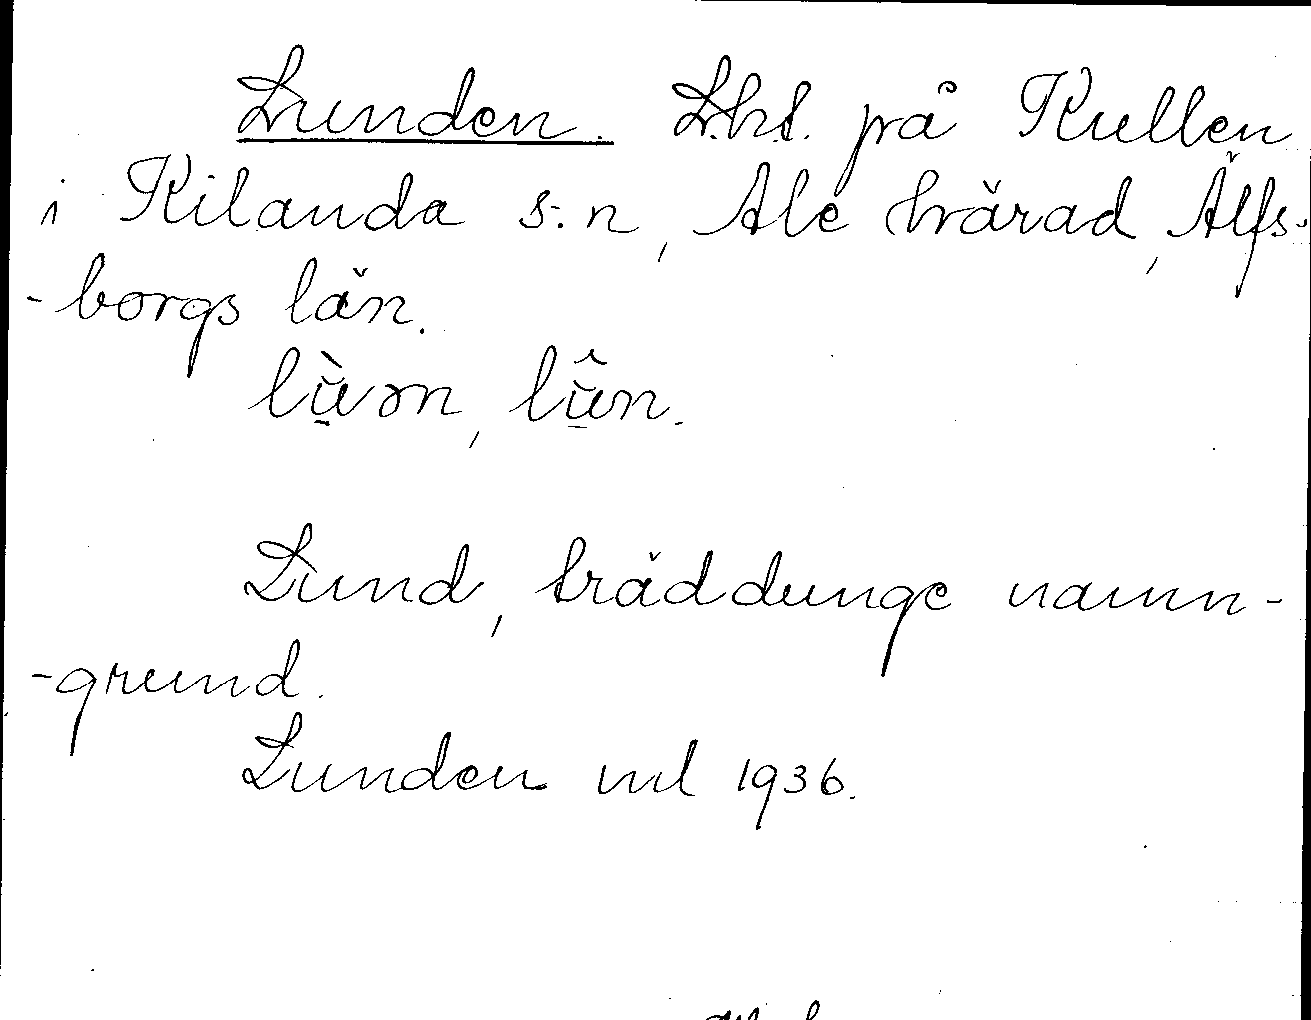 Lunden. Lht. på Kullen
i Kilanda s:n, Ale härad, Älfs-
-borgs län.
lùən, lûn.
Lund, träddunge namn-
-grund.
Lunden ml 1936.